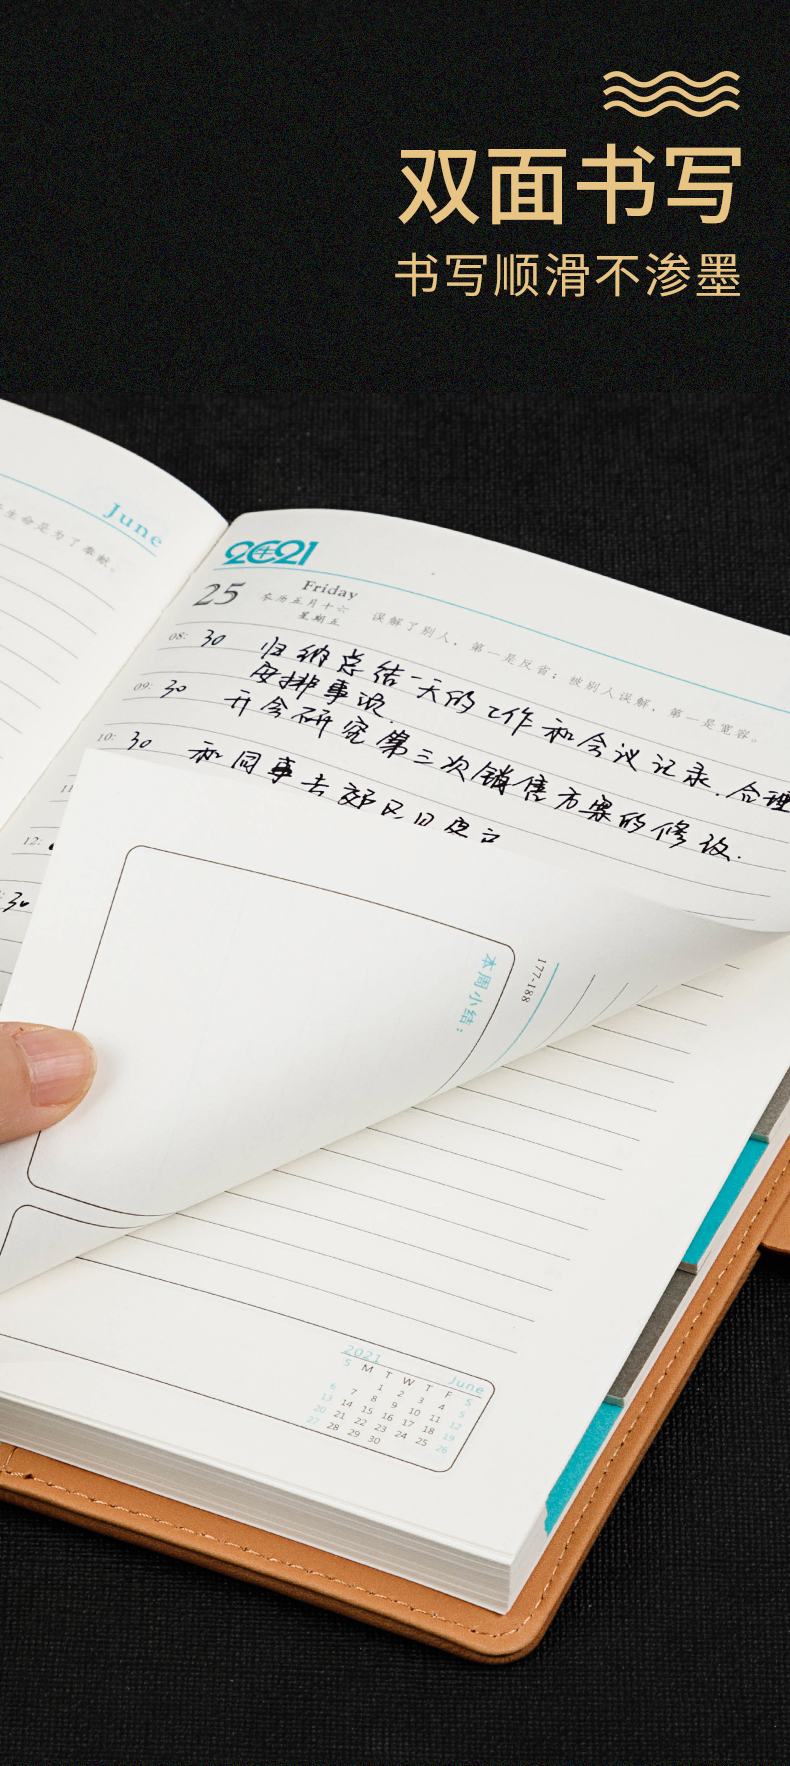 双面书写
书写顺滑不渗墨
生命是为了奉献。
June
2021
25
Friday
农历五月十六
星期五
误解了别人,第一是反省;被别人误解,第一是宽容。
08: 30 归纳总结一天的工作和会议记录.合理
安排事项.
09: 30 开会研究第三次销售方案的修改.
10: 30 和同事去郊区
11
12:
30
本周小结:
177-188
2021 June
S M T W T F S
1 2 3 4 5
6 7 8 9 10 11 12
13 14 15 16 17 18 19
20 21 22 23 24 25 26
27 28 29 30